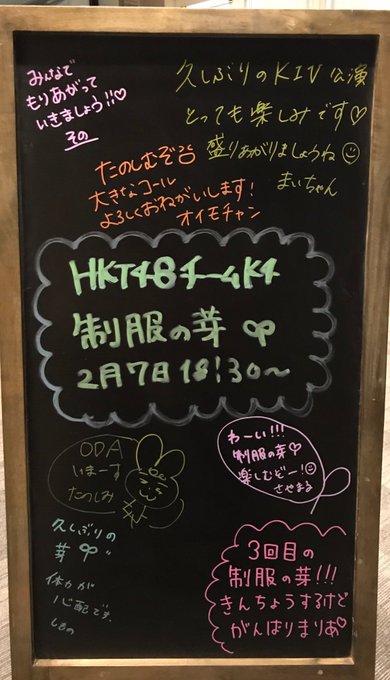 みんなで
もりあがって
いきましょう!!♡
その
久しぶりのKIV公演
とっても楽しみです♡
盛りあがりましょうね☺
まいちゃん
たのしむぞ
大きなコール
よろしくおねがいします!
オイモチャン
HKT48チームK4
制服の芽
2月7日 18:30〜
ODA
いまーす
たのしみ
わーい!!!
制服の芽♡
楽しむぞー!☺
さやまる
久しぶりの
芽
体力が
心配です。
しおの
3回目の
制服の芽!!!
きんちょうするけど
がんばりまりあ♡